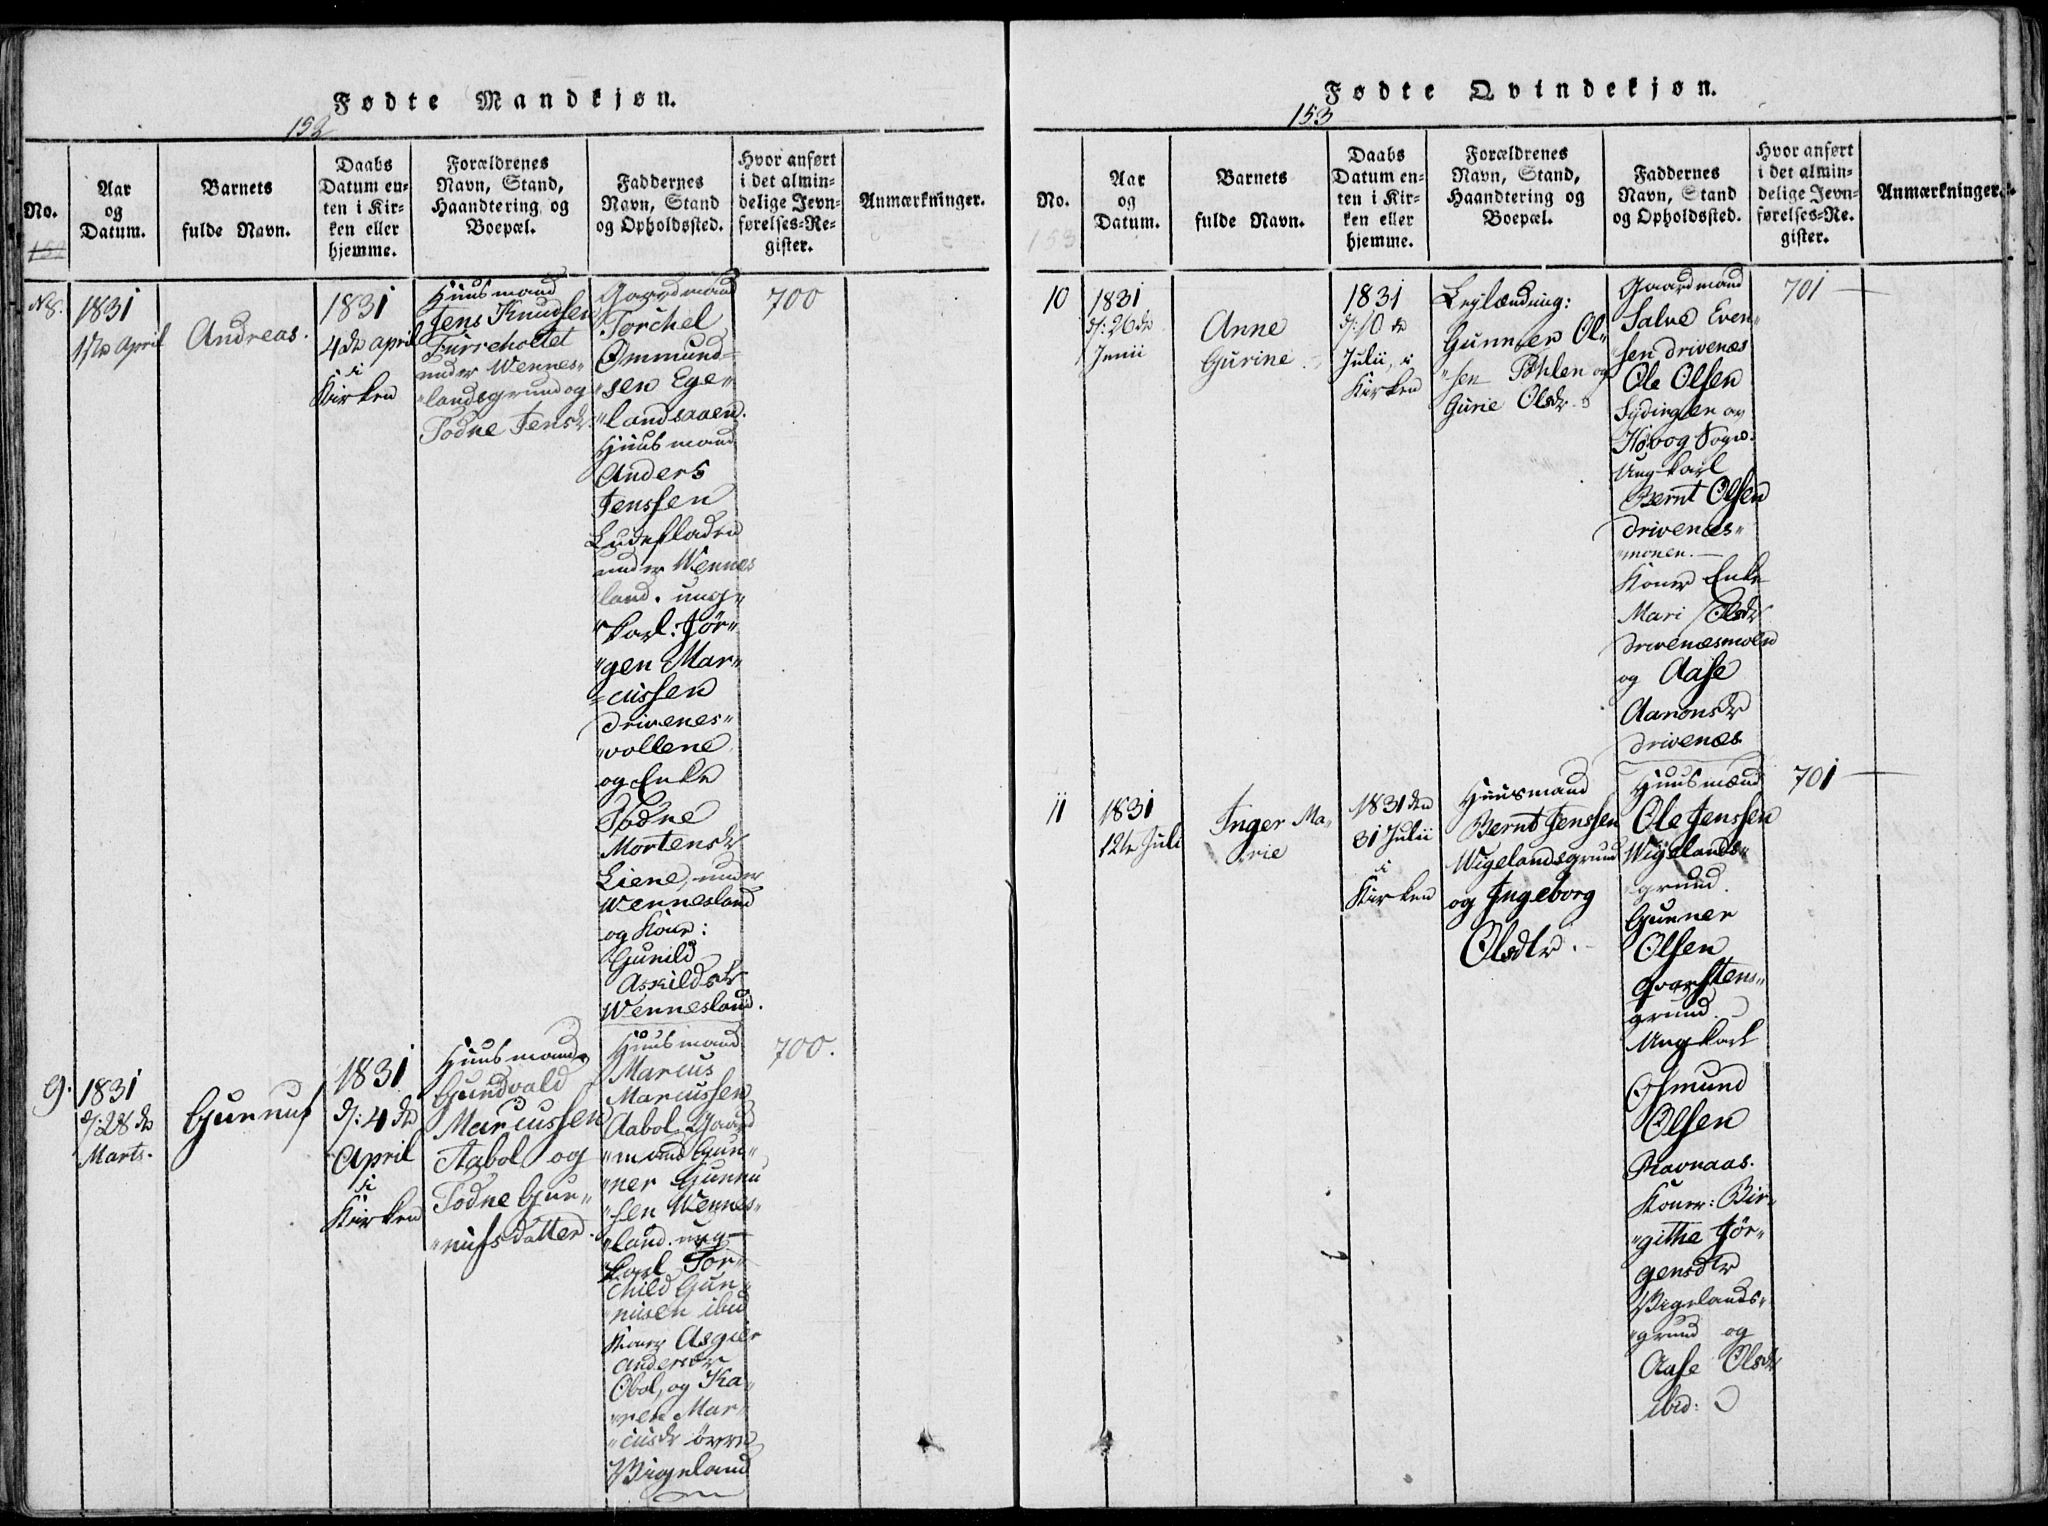 Fødte Mandkjøn.
152
No.
Aar
og
Datum.
Barnets
fulde Navn.
Daabs
Datum en-
ten i Kir-
ken eller
hjemme.
Forældrenes
Navn, Stand,
Haandtering og
Boepæl.
Faddernes
Navn, Stand
og Opholdssted.
Hvor anført
i det almin-
delige Jevn-
førelses-Re-
gister.
Anmærkninger.
No 8.
1831
April
Andreas.
1831
4de April
i
Kirken
Huusmand
Jens Knudsen
Furreholtet
under Wennes-
landsgrund og
Todne Jensdr.
Gaardmand
Torchel
Ommund-
sen Ege-
landsaaen.
Huusmand
Anders
Jenssen
under Wennes
land. ung-
karl: Jör-
gen Mar-
cussen
Drivenes-
vollene
og Enke
Todne
Mortensdr
Liene, under
Wennesland
og Kone:
Gunild
Askildsdr
Wennesland.
700
9.
1831
d: 28de
Marts.
Gunnuf
1831
d: 4de
April
i
Kirken
Huusmand
Gundvald
Marcussen
Aabol og
Todne Gun-
nufsdatter.
Huusmand
Marcus
Marcussen
Aabol. Gaard
mand Gun-
ner Gunnu
sen Wennes-
land. ung-
karl Tor-
child Gun-
nusen ibid
Koner Asgier
Andersdr
Obol, og Ka-
ren Mar-
cusdr övre
Wigeland
700.
Fødte Qvindekjøn.
153
No.
153
Aar
og
Datum.
Barnets
fulde Navn.
Daabs
Datum en-
ten i Kir-
ken eller
hjemme.
Forældrenes
Navn, Stand,
Haandtering og
Boepæl.
Faddernes
Navn, Stand
og Opholdssted.
Hvor anført
i det almin-
delige Jevn-
førelses-Re-
gister.
Anmærkninger.
10
1831
d: 26de
Junii
Anne
Gurine
1831
d: 10de
Julii, i
Kirken
Leylænding:
Gunner Ol-
sen og
Gurie Olsdr.
Gaardmand
Salve Even-
sen Drivenæs
Ole Olsen
Høvog Sogn.
Ungkarl
Bernt Olsen
Drivenæs-
monen.
Koner Enke
Mari Olsdr
Drivenæsmoen
og Aase
Aanonsdr
Drivenæs
701
11
1831
12te Juli
Inger Ma-
rie
1831 den
31 Julii
i
Kirken
Huusmand
Bernt Jenssen
Wigelandsgrund
og Ingeborg
Olsdtr.
Huusmænd
Ole Jenssen
Wigelands-
grund.
Gunner
Olsen
Qvarstens-
grund.
Ungkarl
Osmund
Olsen
Ravnaas.
Koner: Bir-
githe Jör-
gensdtr
Wigelands-
grund og
Aase Olsdr
ibid:
701